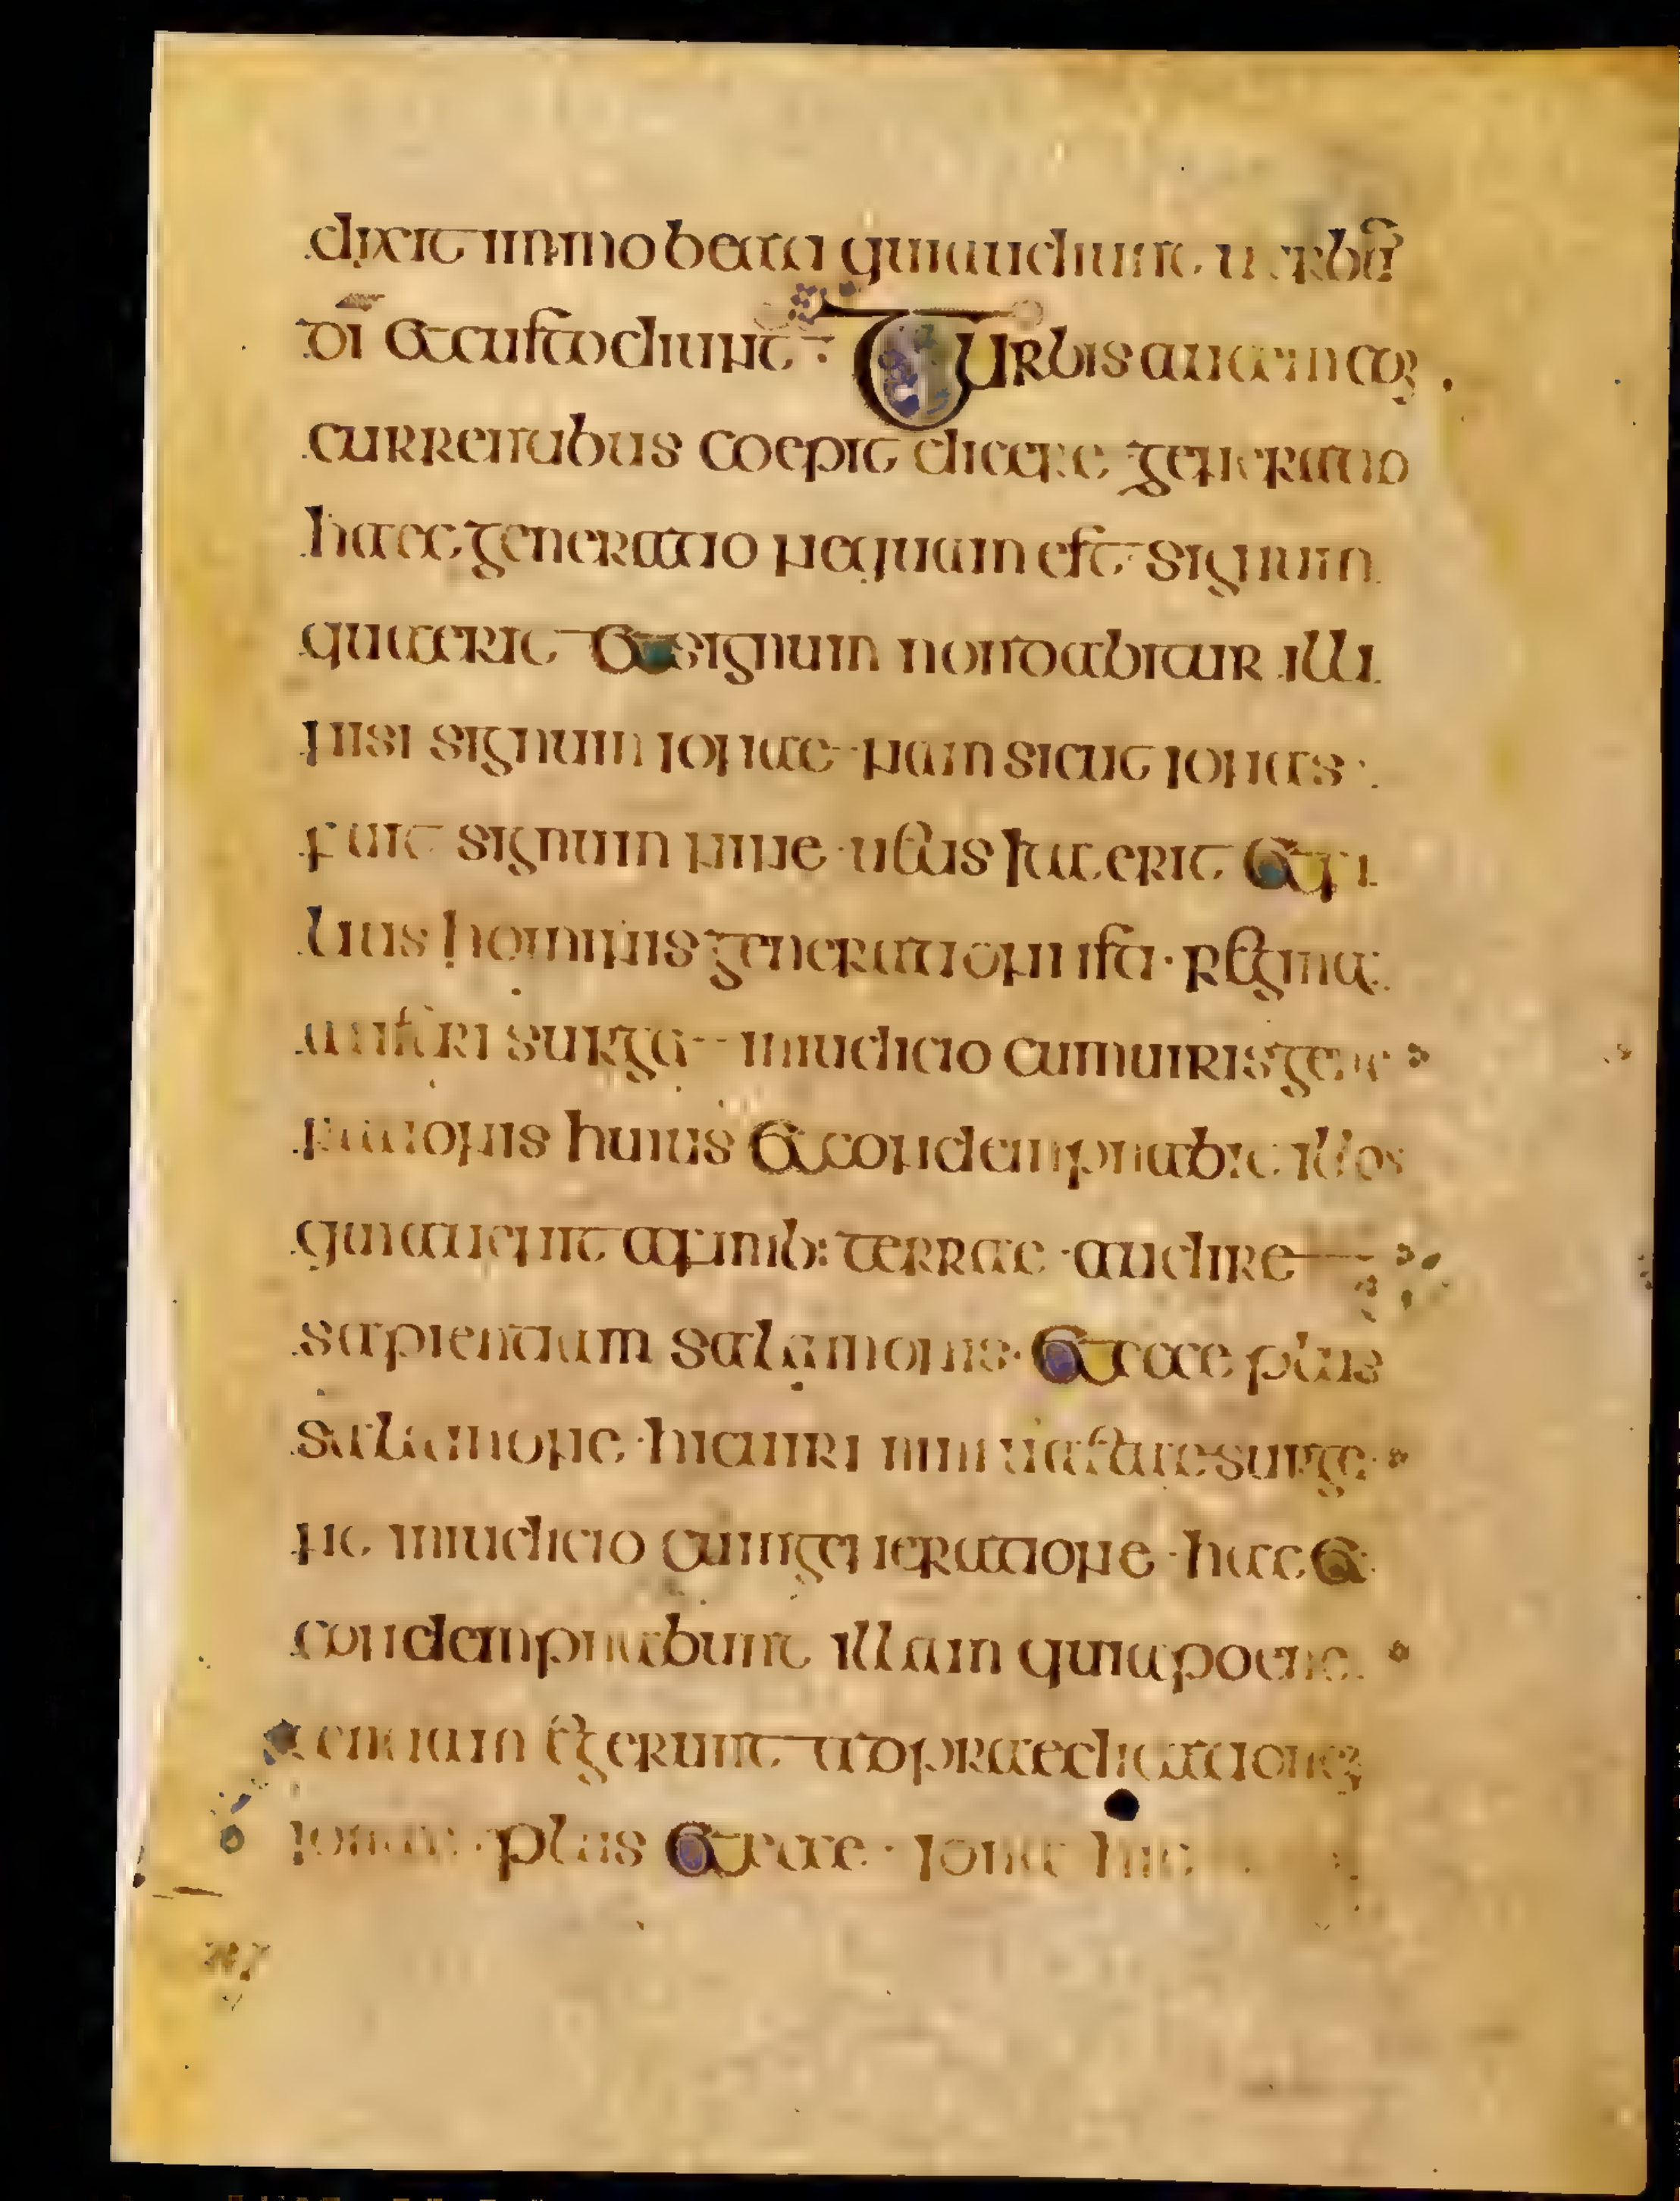 dixit immo beati qui audiunt uerbū
dī et custodiunt · Turbis autem con
currentibus coepit dicere generatio
haec generatio nequam est signum
quaerit et signum non dabitur illi
nisi signum ionae · nam sicut ionas
fuit signum nine · uetis ita erit et fi
lius hominis generationi isti · regina
austri surget in iudicio cum uiris gene
rationis huius et condempnabit illos
quia uenit a finib: terrae · audire
sapientiam salamonis · et ecce plus
salamone · hic uiri niniuetae surge
nt in iudicio cum generatione · hac et
condempnabunt illam quia poene
tentiam egerunt ad praedicationem
ionae · plus et ecce · iona hic